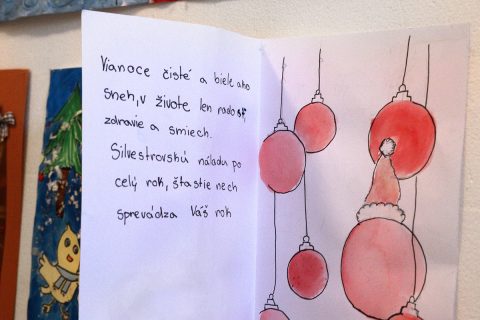 Vianoce čisté a biele ako
sneh, v živote len radosť,
zdravie a smiech.
Silvestrovskú náladu po
celý rok, šťastie nech
sprevádza Váš rok